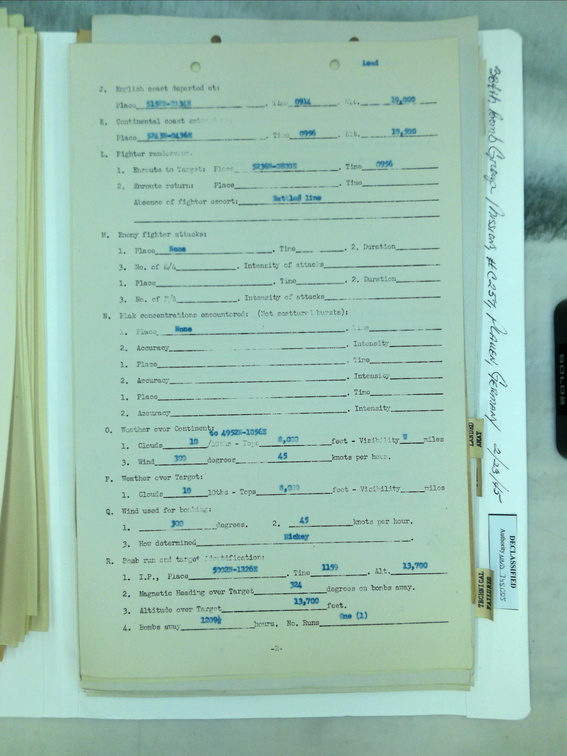 Lead
J. English coast departed at:
Place 5152N-0134E . Time 0914 Alt. 18,000
K. Continental coast
Place 5243N-0436E . Time 0956 Alt. 19,500
L. Fighter
1. Enroute to Target: Place . Time 0956
2. Enroute return: Place . Time
Absence of fighter escort: Battle line
M. Enemy fighter attacks:
1. Place None , Time . 2. Duration
3. No. of E/A , Intensity of attacks
1. Place , Time . 2. Duration
3. No. of E/A , Intensity of attacks
N. Flak concentrations encountered: (Not scattered bursts):
1. Place None . Time
2. Accuracy . Intensity
1. Place . Time
2. Accuracy . Intensity
1. Place . Time
2. Accuracy . Intensity
O. Weather over Continent: to 4952N-1056E
1. Clouds 10 /10ths - Tops 8,000 feet - Visibility miles
3. Wind 300 degrees 45 knots per hour.
P. Weather over Target:
1. Clouds 10 10ths - Tops 8,000 feet - Visibility miles
Q. Wind used for bombing:
1. 300 degrees. 2. 45 knots per hour.
3. How determined Mickey .
R. Bomb run and target identification:
1. I.P., Place 5002N-1226E . Time 1159 . Alt. 13,700
2. Magnetic Heading over Target 324 degrees on bombs away.
3. Altitude over Target 13,700 feet.
4. Bombs away 1209½ hours. No. Runs One (1)
-2-
384th Bomb Group / Mission #C257, Plauen, Germany 2/23/45
LANDED AWAY
TECHNICAL FAILURES
DECLASSIFIED
Authority